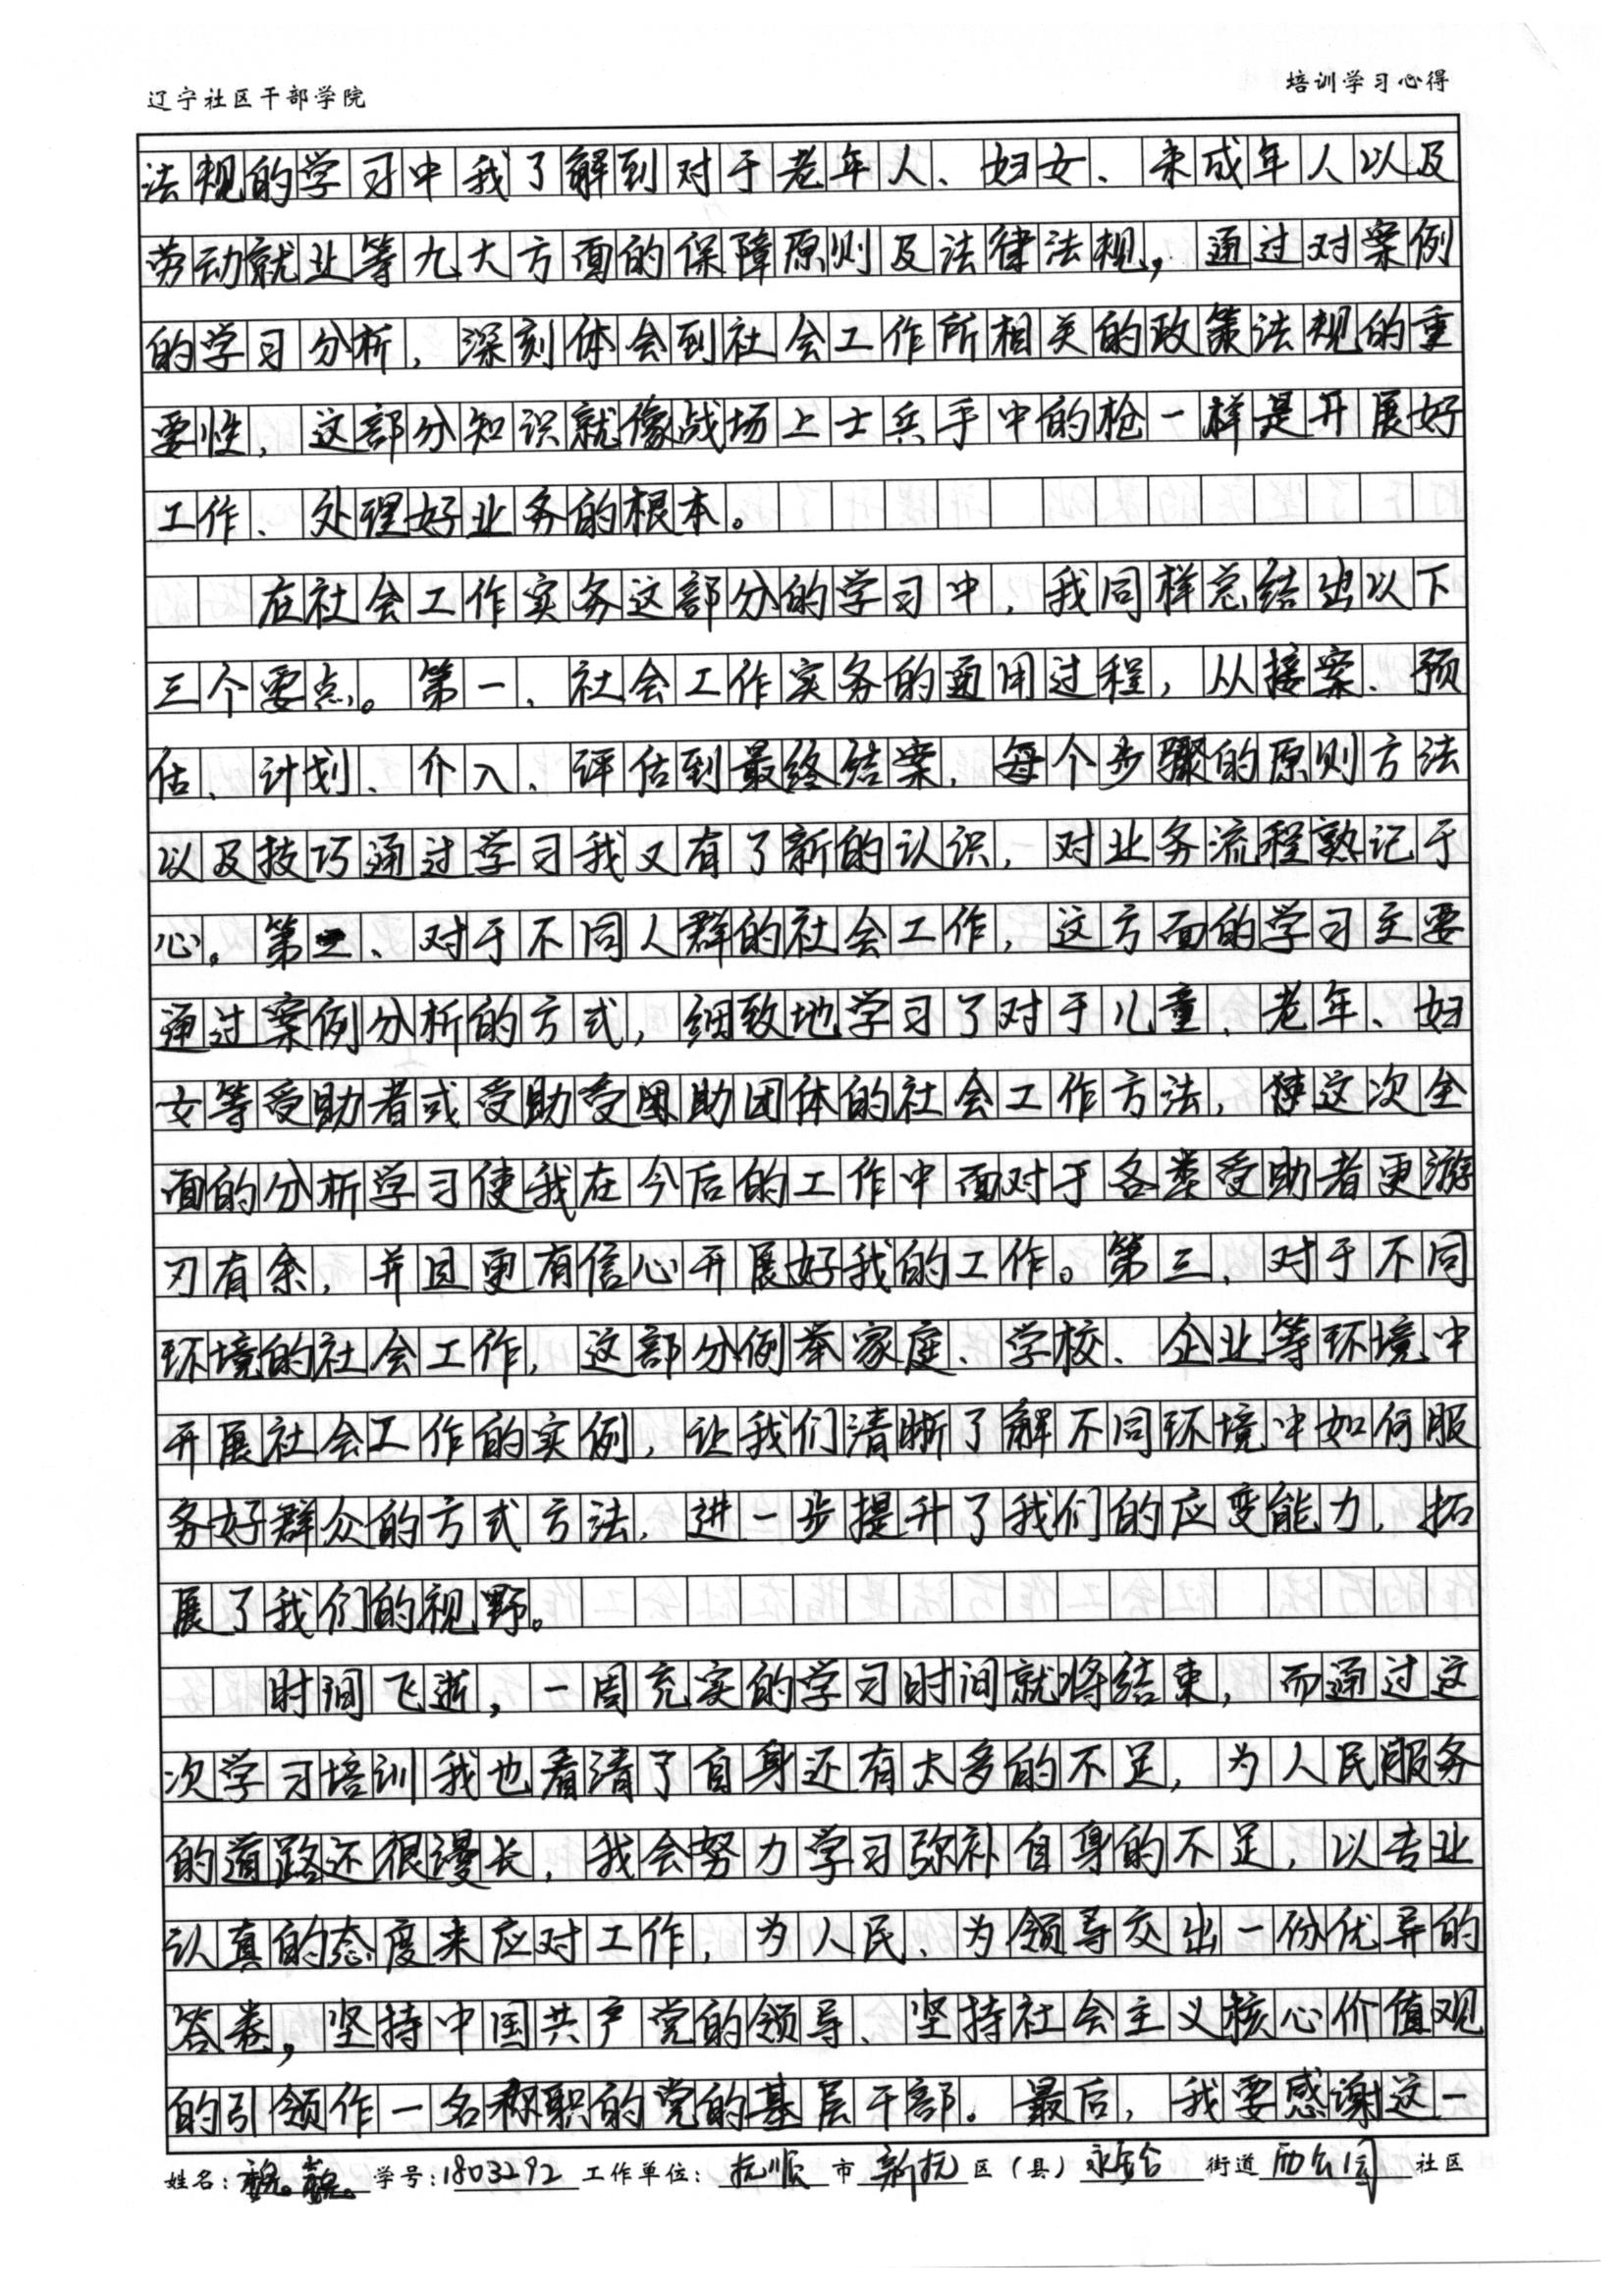 辽宁社区干部学院
培训学习心得
法规的学习中我了解到对于老年人、妇女、未成年人以及
劳动就业等九大方面的保障原则及法律法规，通过对案例
的学习分析，深刻体会到社会工作所相关的政策法规的重
要性，这部分知识就像战场上士兵手中的枪一样是开展好
工作、处理好业务的根本。
在社会工作实务这部分的学习中，我同样总结出以下
三个要点。第一、社会工作实务的通用过程，从接案、预
估、计划、介入、评估到最终结案，每个步骤的原则方法
以及技巧通过学习我又有了新的认识，对业务流程熟记于
心。第二、对于不同人群的社会工作，这方面的学习主要
通过案例分析的方式，细致地学习了对于儿童、老年、妇
女等受助者或受助受困助团体的社会工作方法，使这次全
面的分析学习使我在今后的工作中面对于各类受助者更游
刃有余，并且更有信心开展好我的工作。第三、对于不同
环境的社会工作，这部分例举家庭、学校、企业等环境中
开展社会工作的实例，让我们清晰了解不同环境中如何服
务好群众的方式方法，进一步提升了我们的应变能力，拓
展了我们的视野。
时间飞逝，一周充实的学习时间就将结束，而通过这
次学习培训我也看清了自身还有太多的不足，为人民服务
的道路还很漫长，我会努力学习弥补自身的不足，以专业
认真的态度来应对工作，为人民、为领导交出一份优异的
答卷，坚持中国共产党的领导、坚持社会主义核心价值观
的引领作一名称职的党的基层干部。最后，我要感谢这一
姓名： 学号：1803292 工作单位：抚顺市新抚区（县）街道 社区